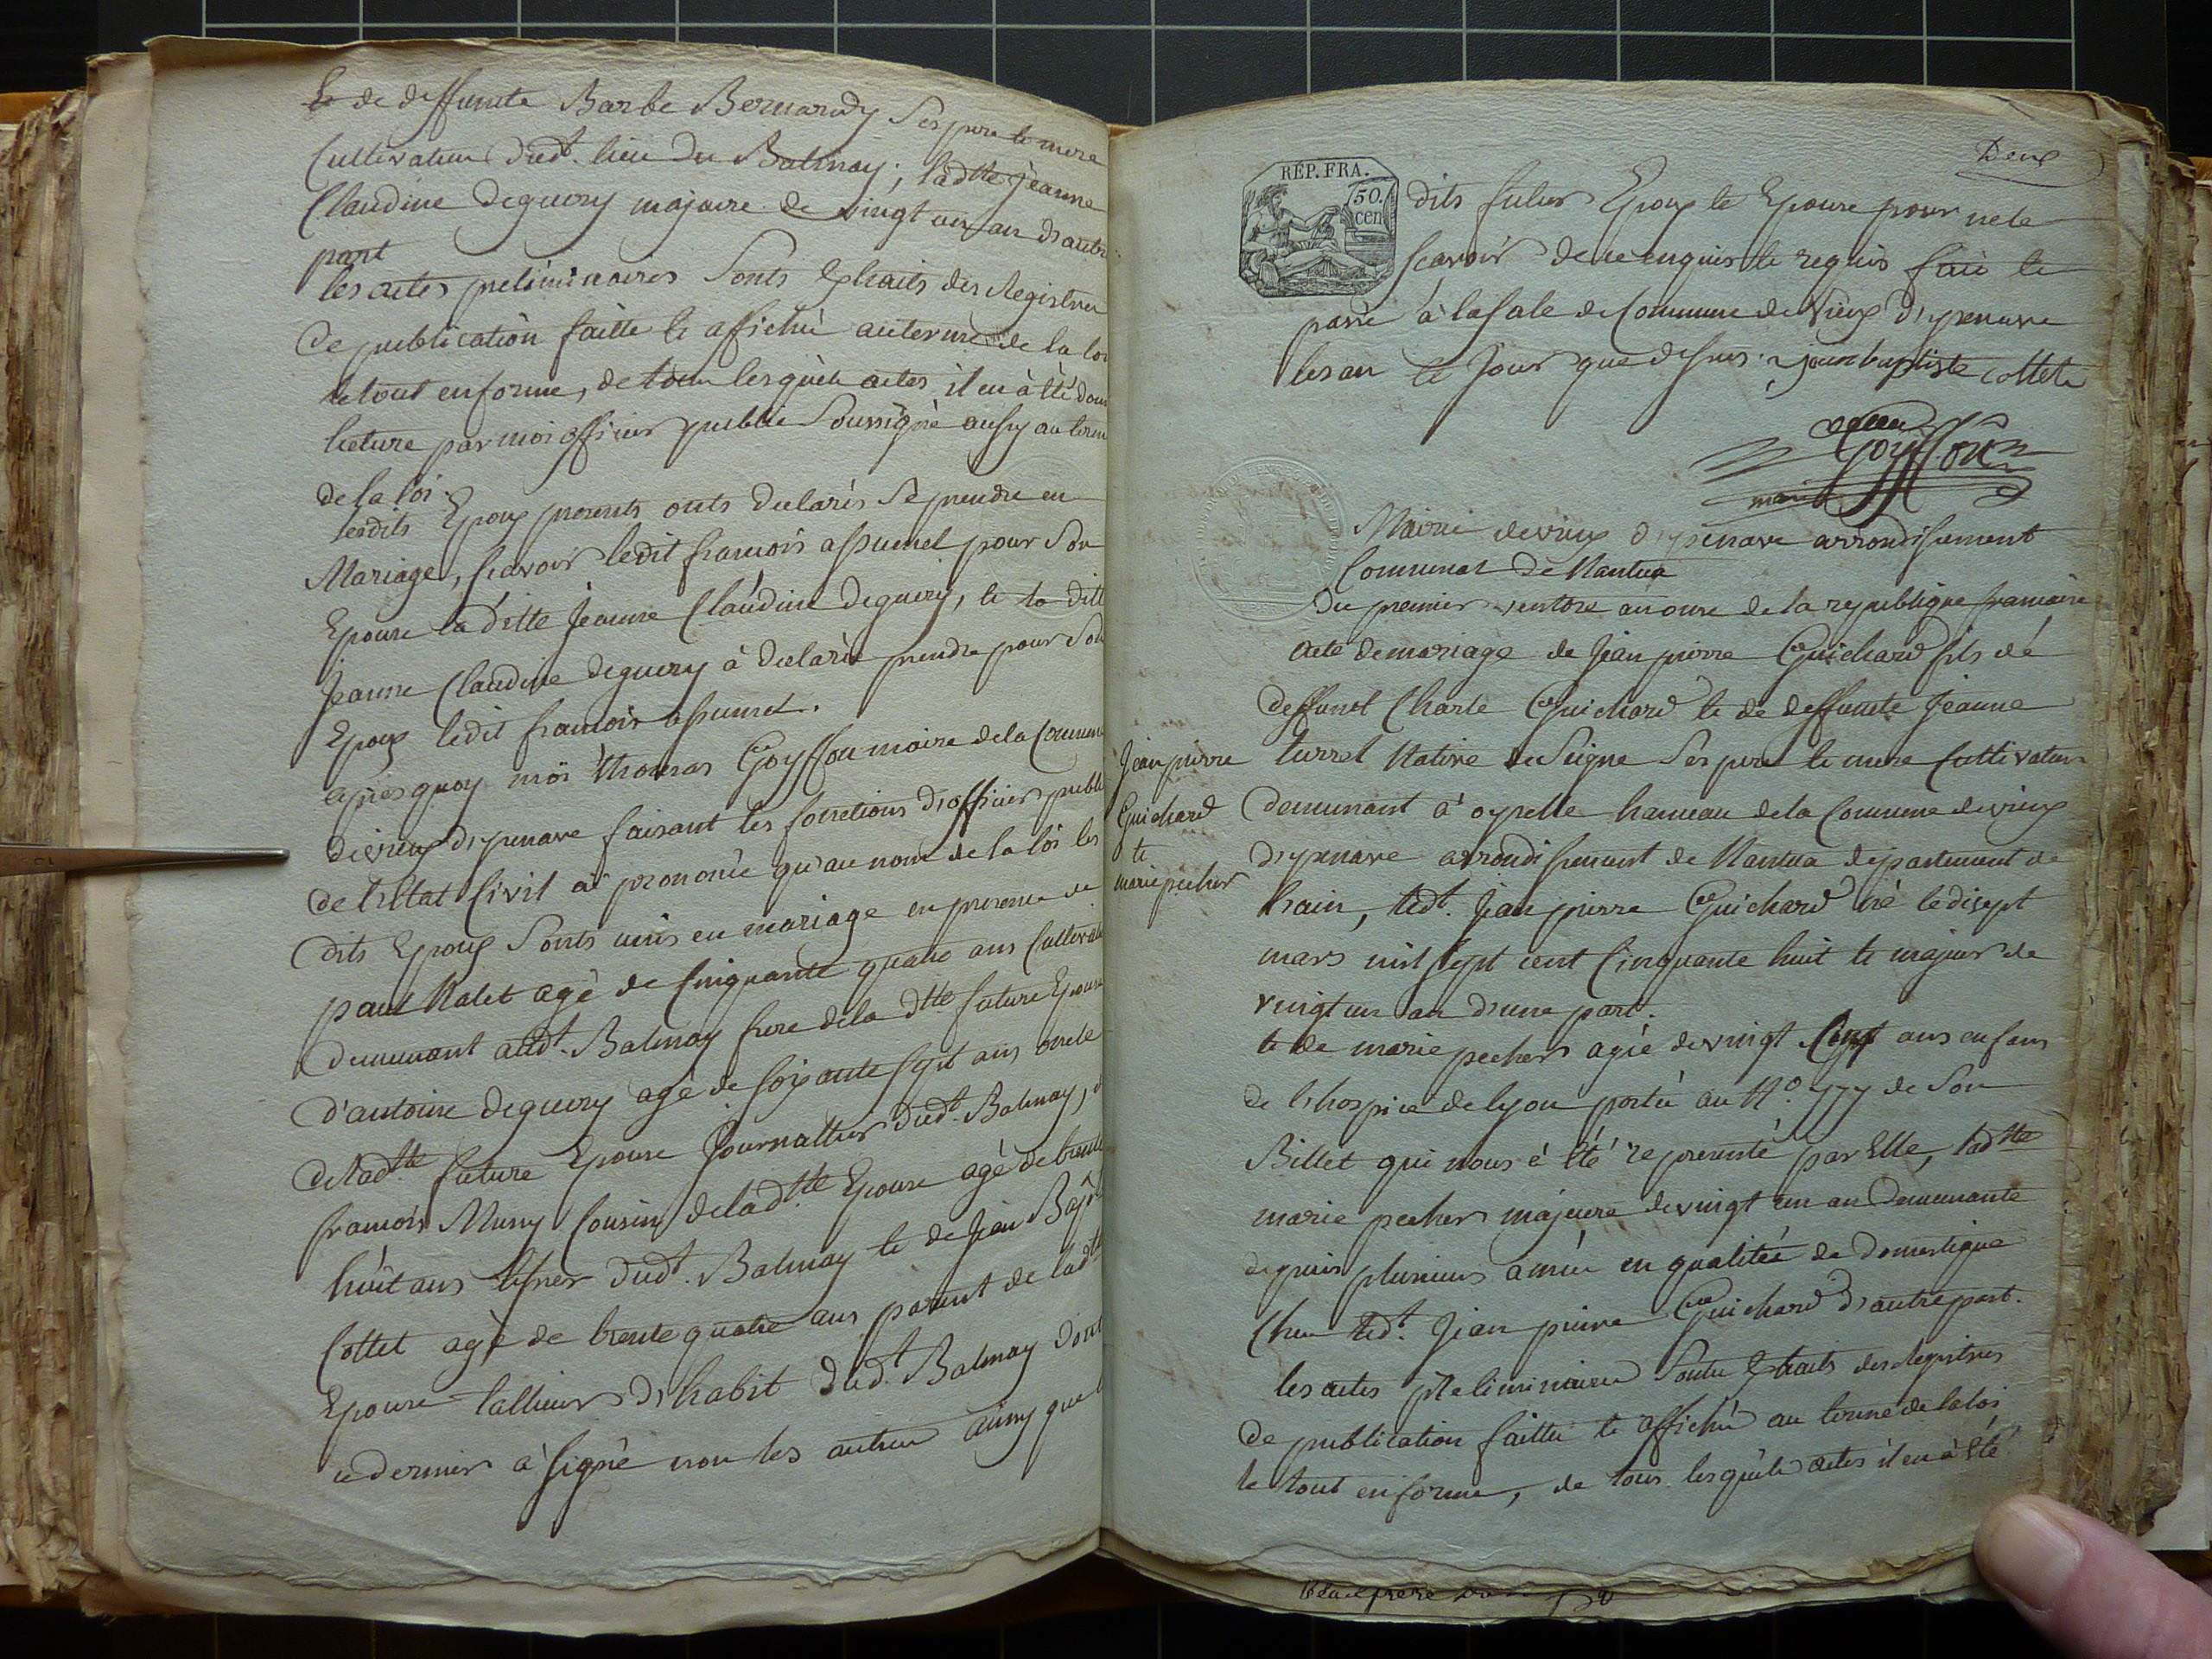 Et de deffunte Barbe Bernardy Ses pere et mere
Cultivateur dudt. lieu du Balmay; ladtte Jeanne
Claudine deguery majeure de vingt un an d'autre
part
les actes preliminaires Sonts Extraits des Registres
de publication faitte et affiché au terme de la loi
le tout en forme, de tous lesquels actes il en à été donné
lecture par moi officier public Soussigné aussy au terme
de la loi.
lesdits Epoux presents onts declarés Se prendre en
Mariage, scavoir ledit francois assumel pour Son
Epouse laditte Jeanne Claudine deguery, et laditte
Jeanne Claudine deguery à declaré prendre pour Son
Epoux ledit francois assumel.
apres quoy moi thomas Goyffon maire de la Commune
de vieux d'yzenave faisant les fonctions d'officier public
de l'état Civil ai prononcé qu'au nom de la loi les
dits Epoux Sonts unis en mariage en presence de
paul Nalet agé de Cinquante quatre ans Cultivateur
demeurant audt. Balmay frere dela dtte future Epouse
d'antoine deguery agé de soixante sept ans oncle
de ladtte future Epouse Journallier dudt. Balmay, de
francois Muny Cousin deladtte Epouse agé de trente
huit ans dudt. Balmay et de Jean Bapte
Cottet agé de trente quatre ans parent de ladtte
Epouse tallieur d'habit dudt. Balmay dont
ce dernier à signé non les autres ainsy que
Deux
RÉP. FRA.
50. cen
dits futur Epoux et Epouse pour ne le
scavoir de ce enquis et requis fait et
passé à la sale de Commune de Vieux d'yzenave
les an et Jour que dessus. jean baptiste cottet
Goyffon
maire
Mairie de vieux d'yzenave arrondissement
Communal de Nantua
Du premier ventose an onze de la republique francaise
acte de mariage de Jean pierre Guichard fils de
deffunt Charle Guichard et de deffunte Jeanne
turrel Native du Seigne Ses pere et mere Cultivateur
Jean pierre
Guichard
et
marie pecher
demeurant à oyselle hameau dela Commune de vieux
d'yzenave arrondissement de Nantua departement de
hain, ledt. Jean pierre Guichard né le disept
mars mil sept cent Cinquante huit et majeur de
vingt un an d'une part.
et de marie pecher agée de vingt Cinq ans enfans
de l'hospice de lyon porté au No. 777 de Son
Billet qui nous à été representé par Elle, ladtte
marie pecher majeure de vingt un an Demeurante
depuis plusieurs année en qualitée de Domestique
Chez ledt. Jean pierre Guichard d'autre part.
les actes preliminaires Sonts Extraits des Registres
de publication faitte et affiché au terme de la loi
le tout en forme, de tous lesquels actes il en à été